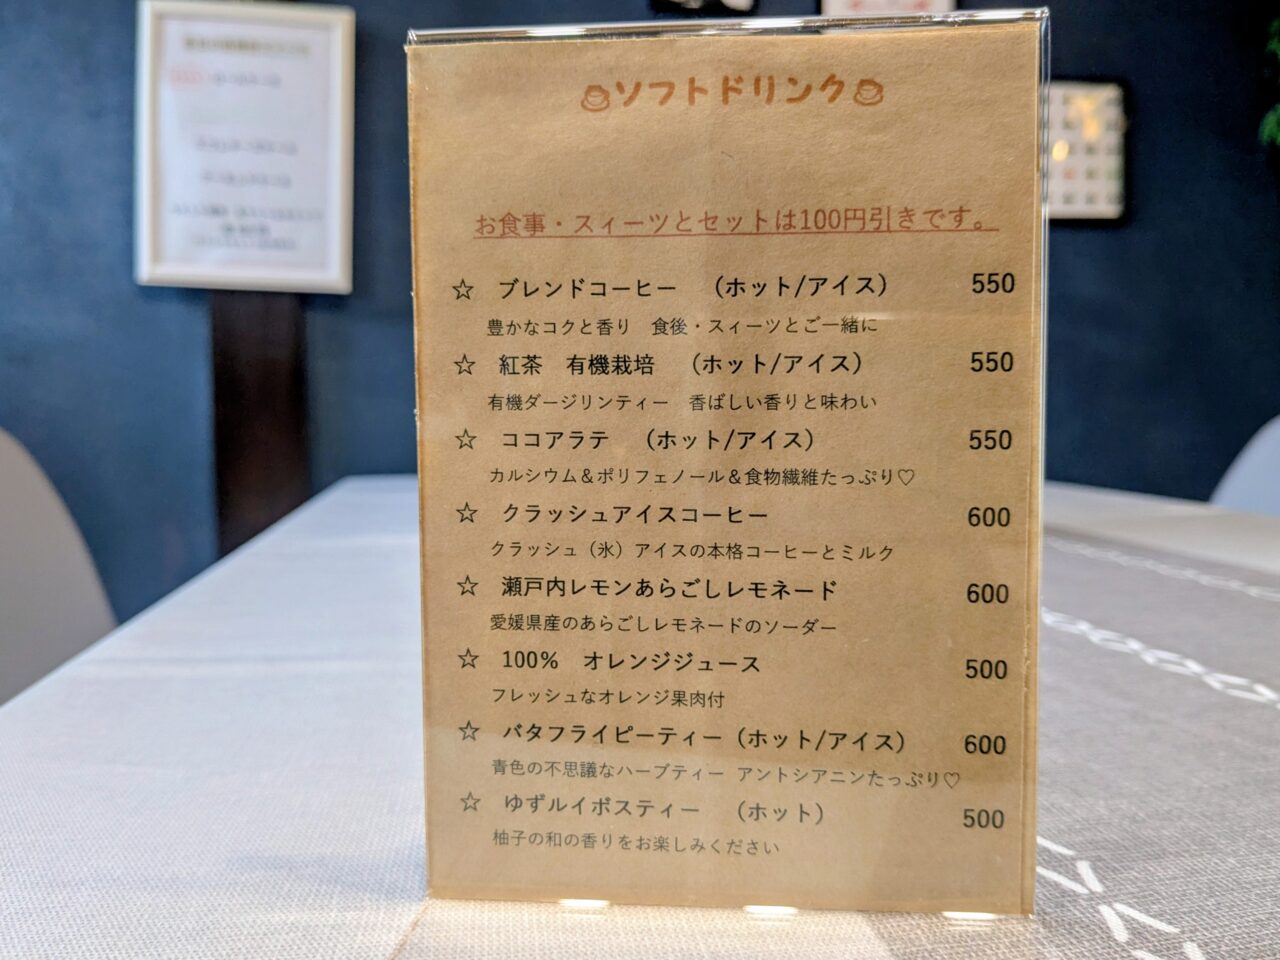 ソフトドリンク
お食事・スィーツとセットは100円引きです。
☆ ブレンドコーヒー （ホット/アイス） 550
豊かなコクと香り 食後・スィーツとご一緒に
☆ 紅茶 有機栽培 （ホット/アイス） 550
有機ダージリンティー 香ばしい香りと味わい
☆ ココアラテ （ホット/アイス） 550
カルシウム＆ポリフェノール＆食物繊維たっぷり♡
☆ クラッシュアイスコーヒー 600
クラッシュ（氷）アイスの本格コーヒーとミルク
☆ 瀬戸内レモンあらごしレモネード 600
愛媛県産のあらごしレモネードのソーダー
☆ 100％ オレンジジュース 500
フレッシュなオレンジ果肉付
☆ バタフライピーティー（ホット/アイス） 600
青色の不思議なハーブティー アントシアニンたっぷり♡
☆ ゆずルイボスティー （ホット） 500
柚子の和の香りをお楽しみください